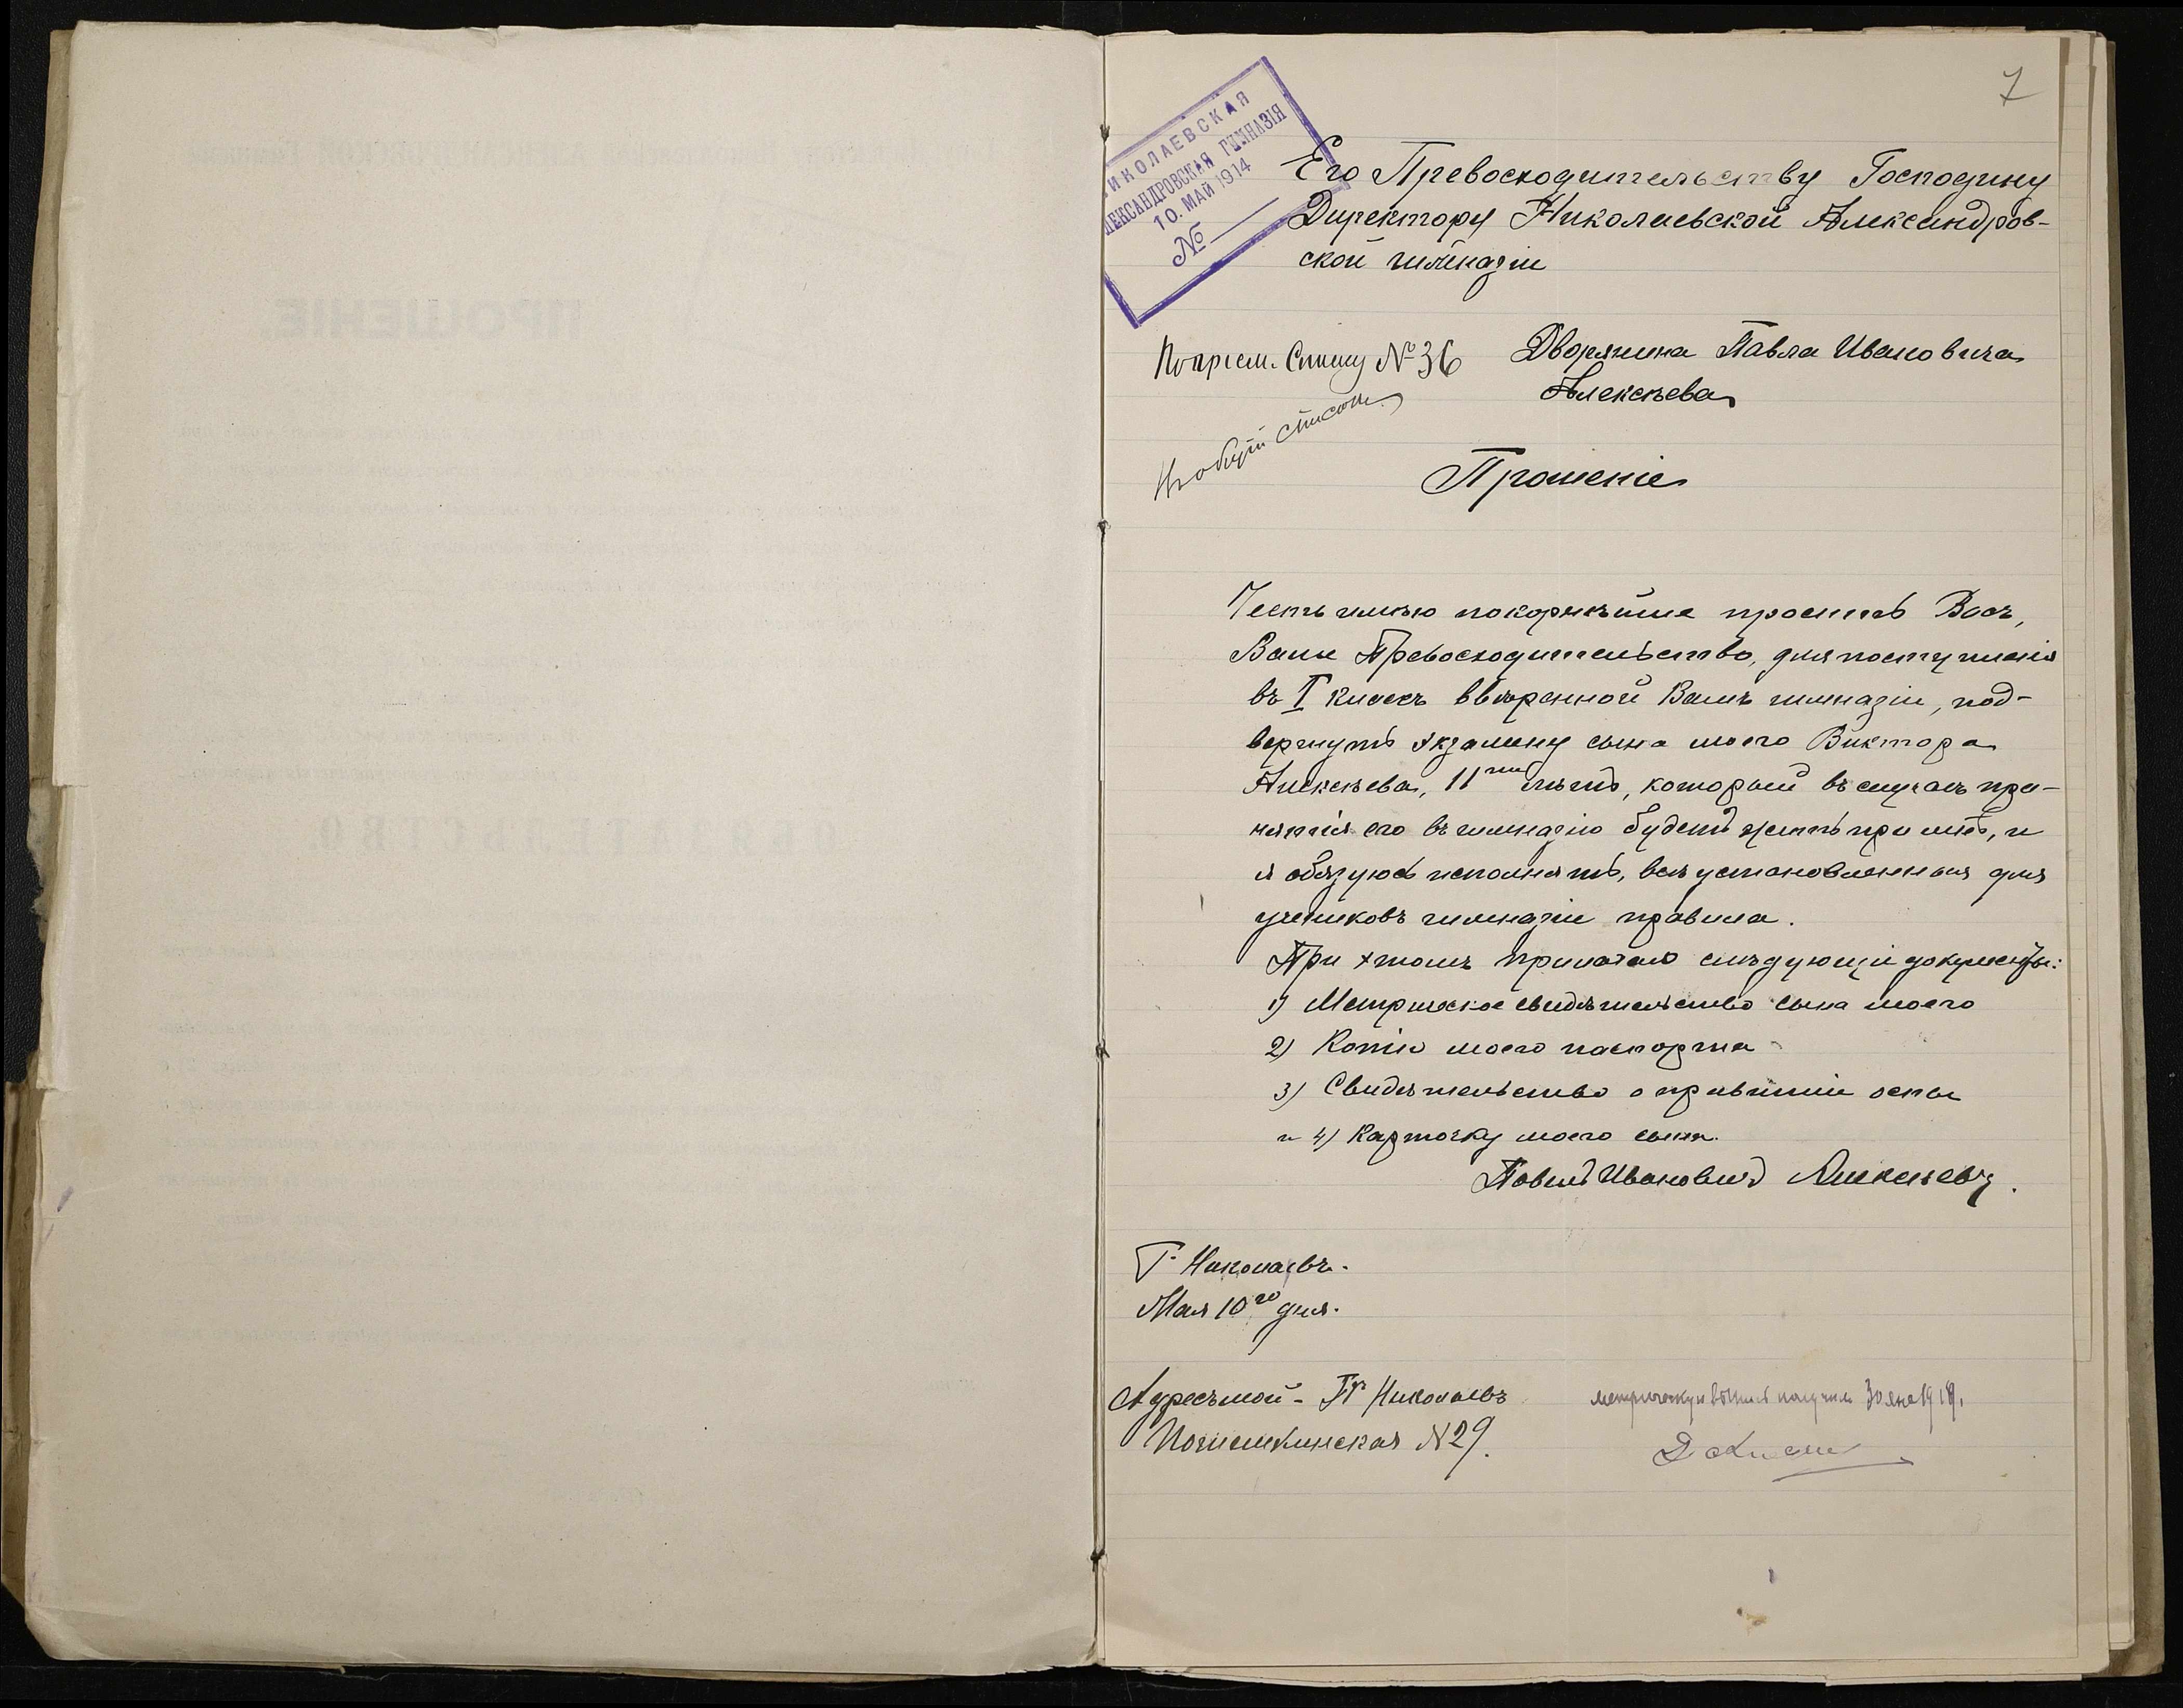 7
НИКОЛАЕВСКАЯ
АЛЕКСАНДРОВСКАЯ ГИМНАЗІЯ
10. МАЙ 1914
№
Его Превосходительству Господину
Директору Николаевской Александров-
ской гимназіи
По пріем. списку № 36
Дворянина Павла Ивановича
Алексѣева
общій списокъ
Прошеніе
Честь имѣю покорнѣйше просить Васъ,
Ваше Превосходительство, для поступленія
въ I классъ ввѣренной Вамъ гимназіи, под-
вергнуть экзамену сына моего Виктора
Алексѣева, 11ти лѣтъ, который въ случаѣ при-
нятія его въ гимназію будетъ жить при мнѣ, и
я обязуюсь исполнять, всѣ установленныя для
учениковъ гимназіи правила.
При этомъ прилагаю слѣдующіе документы:
1) Метрическое свидѣтельство сына моего
2) Копію моего паспорта
3) Свидѣтельство о привитіи оспы
и 4) Карточку моего сына.
Павелъ Ивановичъ Алексѣевъ.
Г. Николаевъ.
Мая 10го дня.
Адресъ мой - Гр. Николаевъ
№ 29.
метрическую выпись получилъ 30 янв 1919.
ПРОШЕНІЕ